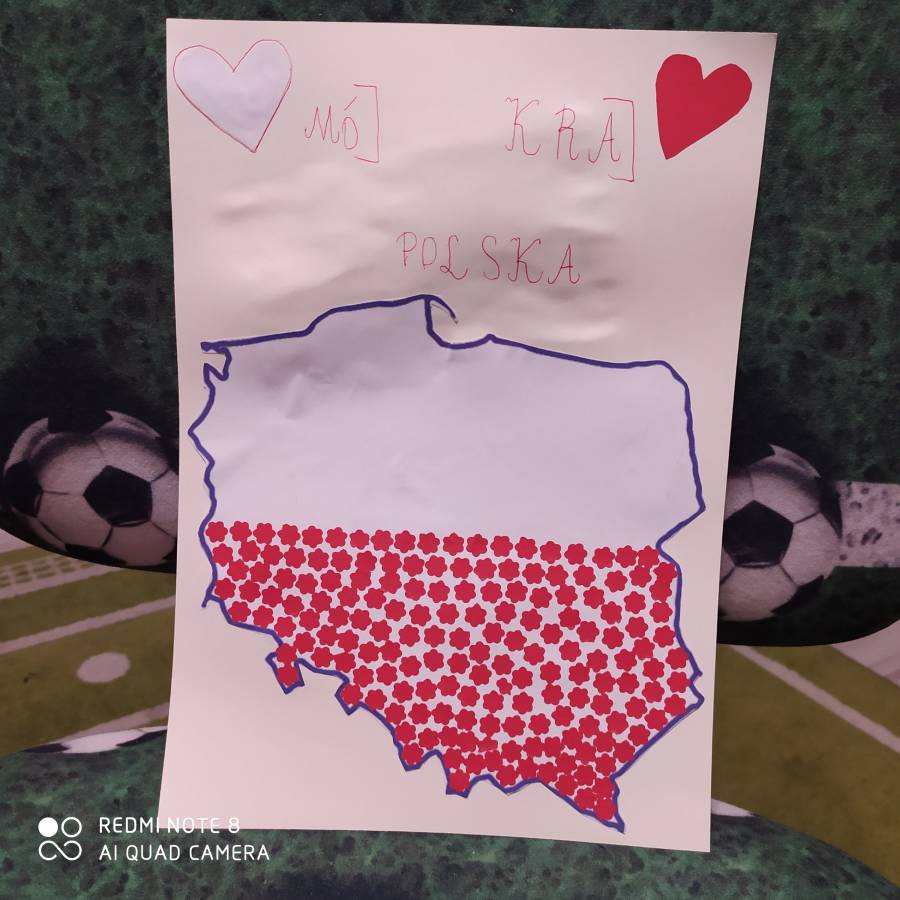 MÓJ KRAJ
POLSKA
REDMI NOTE 8
AI QUAD CAMERA